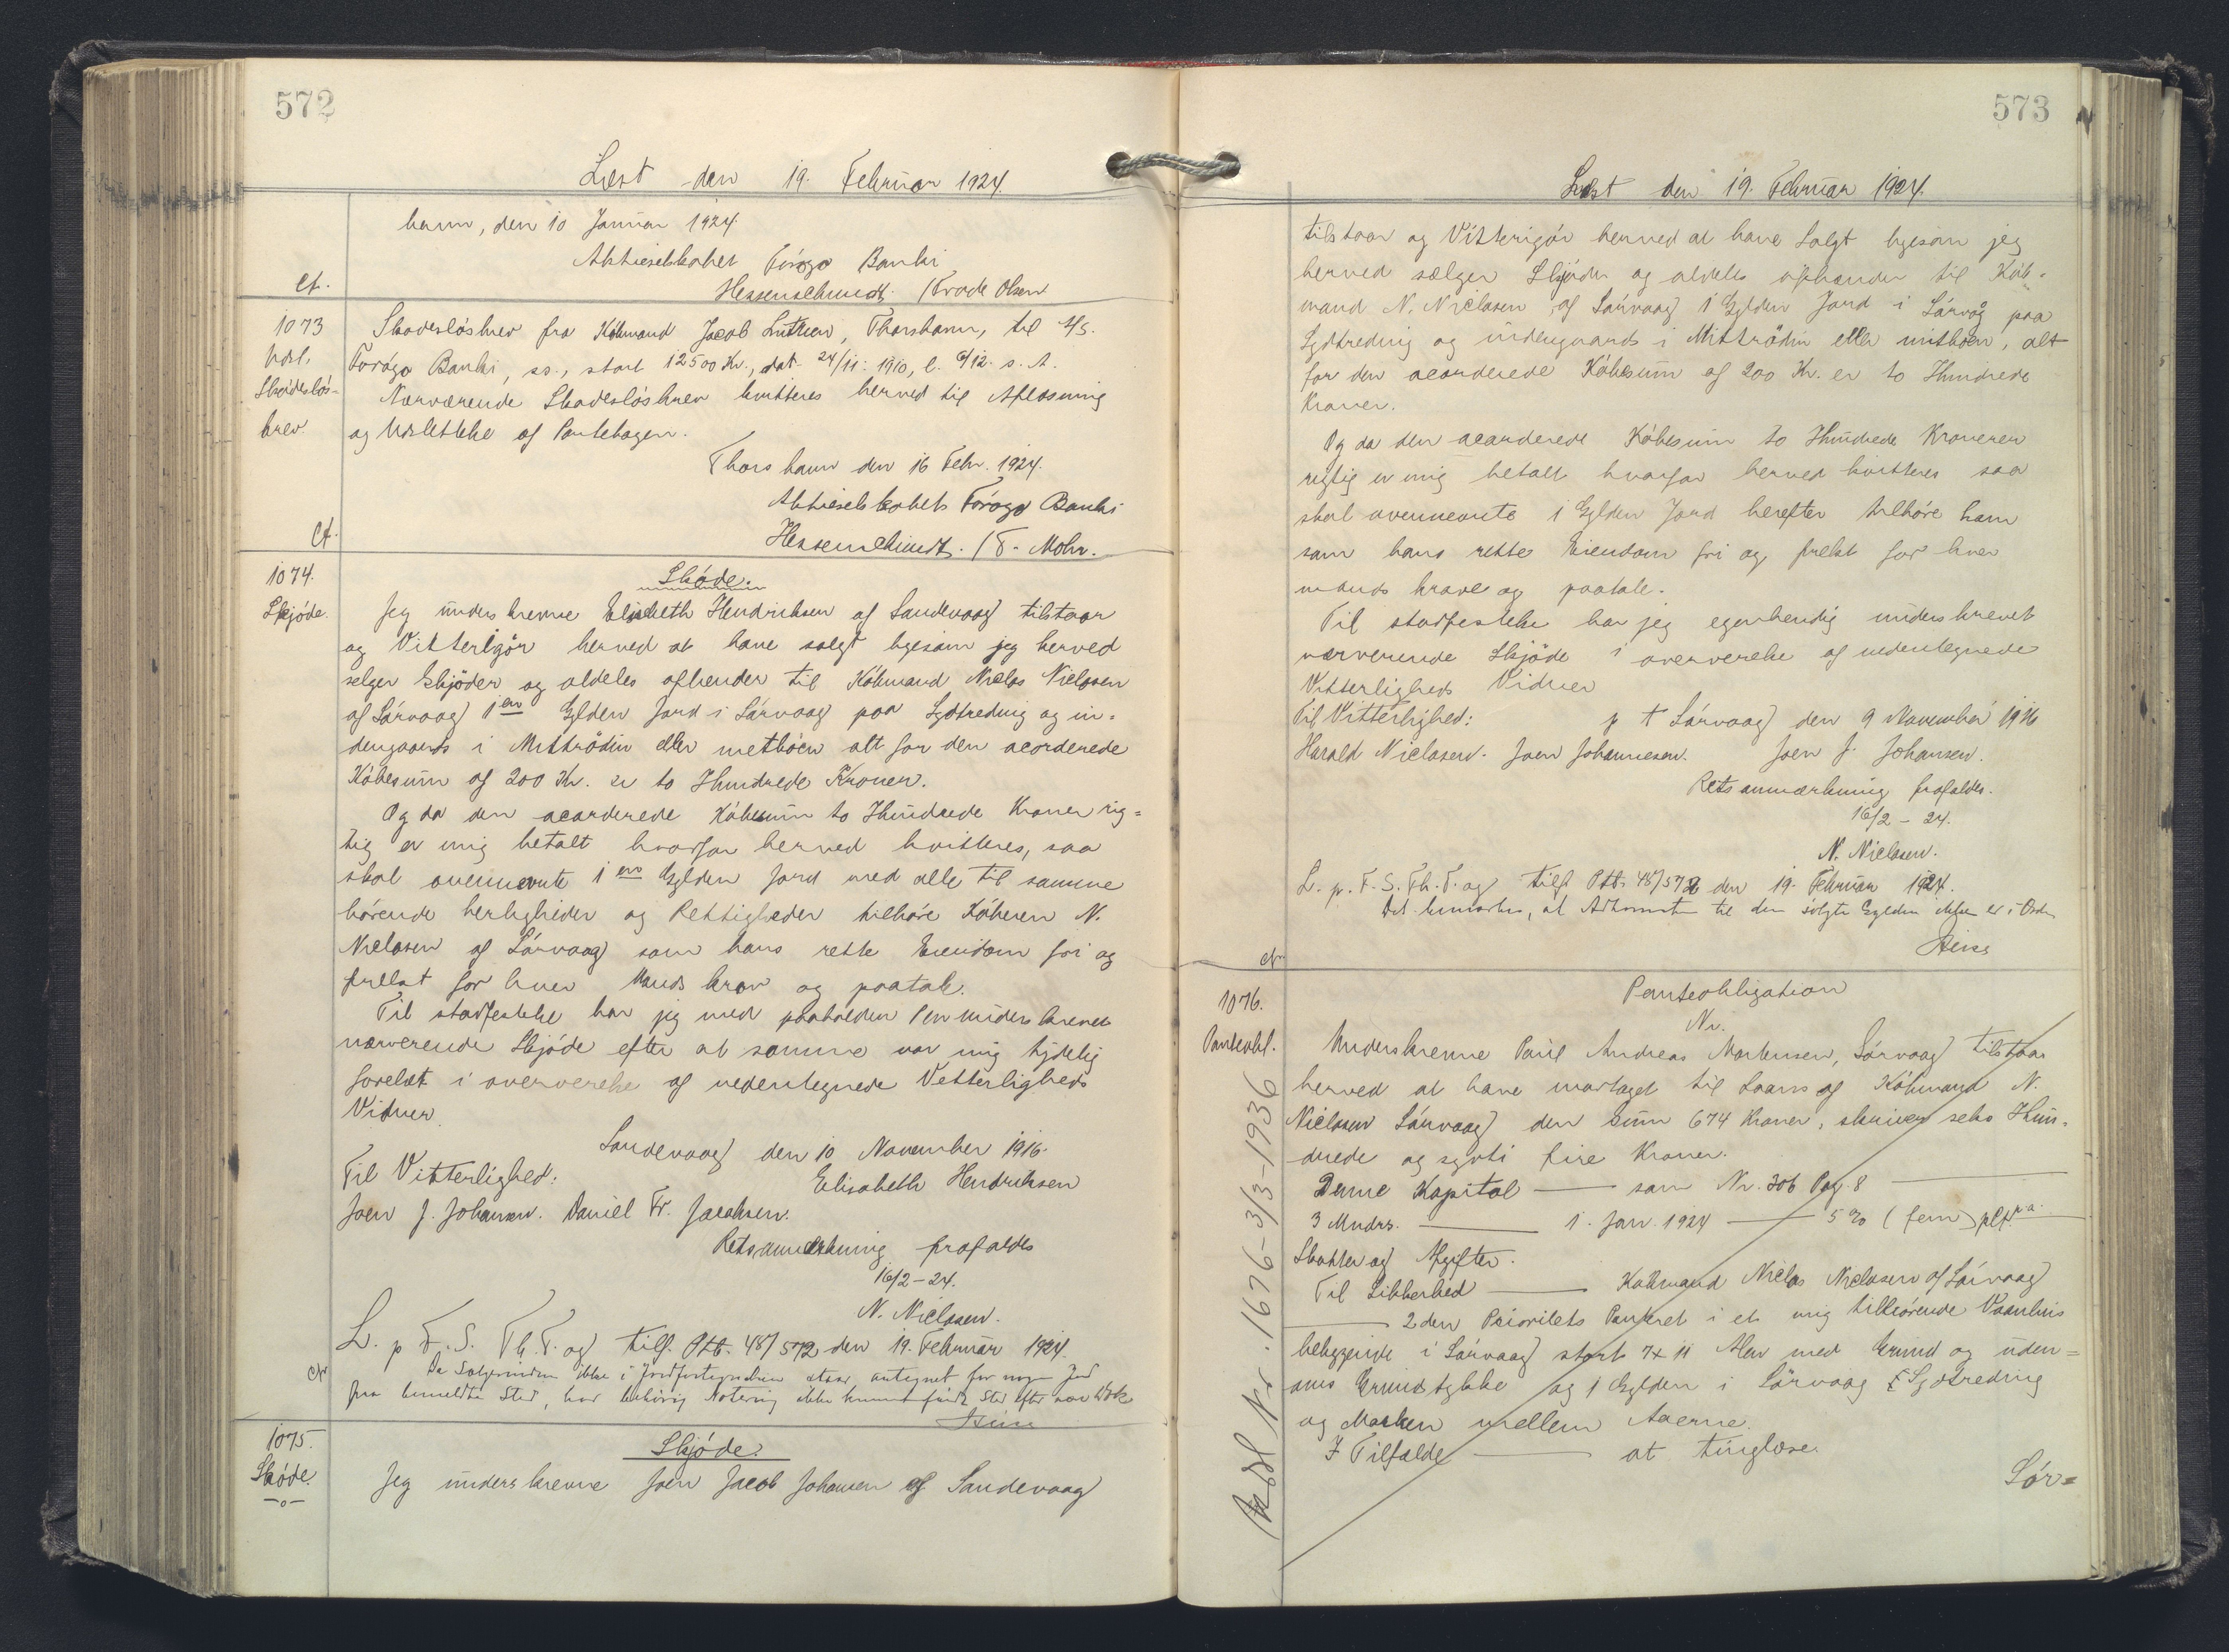 572
Læst den 19. Februar 1924.
havn, den 10 Januar 1924.
Aktieselskabet Føroya Banki
Hessenschmidt. / Frode Olsen
Ct.
1073
Udsl.
Skadesløs-
brev.
Skadesløsbrev fra Købmand Jacob Lützen, Thorshavn, til A/S.
Føroya Banki, ss., stort 12500 Kr., dat. 24/11. 1910, l. 9/12. s. A.
Nærværende Skadesløsbrev kvitteres herved til Aflæsning
og Udslettelse af Pantebogen.
Thorshavn den 16 Febr. 1924.
Aktieselskabet Føroya Banki
Hessenschmidt. / F. Mohr.
Ct.
1074.
Skjøde.
Skøde.
Jeg underskrevne Elisabeth Hendriksen af Sandevaag tilstaar
og Vitterligør herved at have solgt ligesom jeg herved
selger skjøder og aldeles afhender til Købmand Niclas Niclasen
af Sørvaag 1 en Gylden Jord i Sørvaag paa Lydtreding og in-
dengaards i Mittrødin eller metbøen alt for den acorderede
Købesum af 200 Kr. er to Hundrede Kroner.
Og da den acorderede Købesum to Hundrede Kroner rig-
tig er mig betalt hvorfor herved kvitteres, saa
skal ovennevnte 1 en Gylden Jord med alle til samme
hørende herligheder og Rettigheder tilhøre Køberen N.
Niclasen af Sørvaag som hans rette Eiendom fri og
frelst for hver Mands krav og paatale.
Til stadfestelse har jeg med paaholden Pen underskrevet
nærverende Skjøde efter at samme var mig tydelig
forelæst i oververelse af nedentegnede Vetterligheds
Vidner.
Sandevaag den 10 November 1916.
Til Vitterlighed:
Elisabeth Hendriksen
Joen J. Johansen. Daniel Fr. Jacobsen.
Retsanmærkning frafaldes
16/2-24.
N. Niclasen.
L. p. F. S. Th. T. og tilf. Ptb. 48/572 den 19. Februar 1924.
Da Sælgerinden ikke i Jordfortegnelsen staar antegnet for nogen Jord
fra bemeldte Sted, har behørig Notering ikke kunnet finde Sted efter
Ct
1075.
Skøde.
-o-
Skjøde.
Jeg underskrevne Joen Jacob Johansen af Sandevaag
573
Læst den 19. Februar 1924.
tilstaar og Vitterigør herved at have Solgt ligesom jeg
herved sælger Skjøder og aldeles afhender til Køb-
mand N. Niclasen af Sørvaag 1 Gylden Jord i Sørvåg paa
Lydtreding og indengaards i Mittrødin eller mitbøen, alt
for den acorderede Købesum af 200 Kr. er to Hundrede
Kroner.
Og da den acorderede Købesum to Hundrede Kronerer
rigtig er mig betalt hvorfor herved kvitteres saa
skal ovennevnte 1 Gylden Jord herefter tilhøre ham
som hans rette Eiendom fri og frelst for hver
mands krave og paatale.
Til stadfestelse har jeg egenhendig underskrevet
nærverende Skjøde i oververelse af nedentegnede
Vitterligheds Vidner
Til Vitterlighed: p t Sørvaag den 9 November 1916
Harald Niclasen. Joen Johannesen. Joen J. Johansen.
Retsanmærkning frafaldes.
16/2-24.
N. Niclasen.
L. p. F. S. Th. T. og tilf. Ptb. 48/572 den 19. Februar 1924.
Det bemærkes, at Adkomsten til den solgte Gylden ikke er i Orden
Ct
1076.
Panteobl.
Panteobligation
Nr.
Underskrevne Poul Andreas Mortensen, Sørvaag tilstaar
herved at have modtaget til Laans af Købmand N.
Niclasen Sørvaag den Sum 674 Kroner, skriver seks Hun-
drede og syvti fire Kroner.
Denne Kapital — som Nr. 306 Pag. 8 —
3 Mndrs. — 1. Jan. 1924 — 5 % (fem) pCt. p.a.
Skatter og Afgifter.
Til Sikkerhed — Købmand Niclas Niclasen af Sørvaag
— 2den Prioritets Panteret i et mig tilhørende Vaanhus
beliggende i Sørvaag stort 7 x 11 Alen med Grund og uden-
oms Grundstykke og 1 Gylden i Sørvaag i Lydtreding
og Marken mellem Aaerne.
I Tilfælde — at tinglæse.
Sør=
Udsl Nr. 1676-3/3-1936